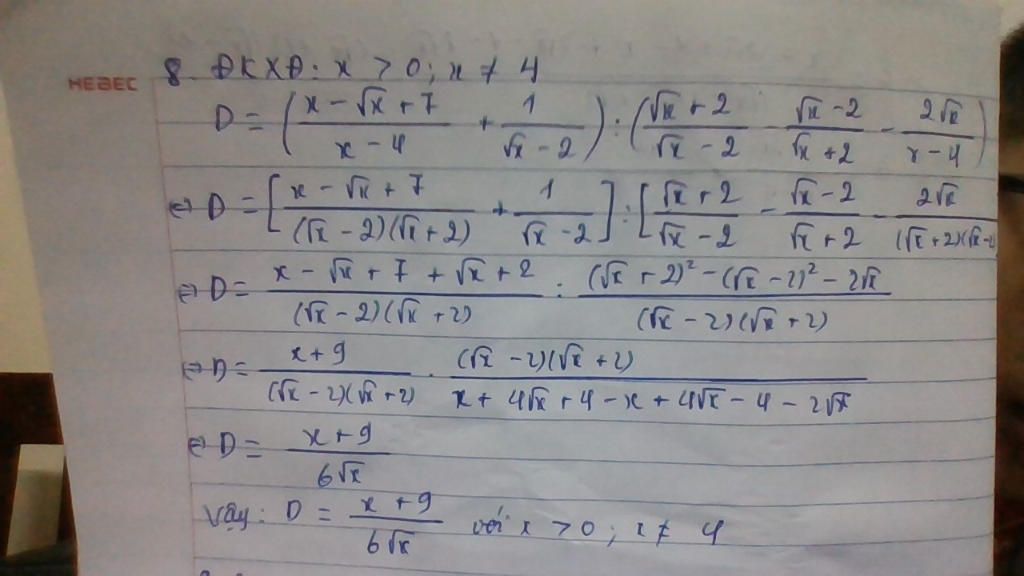 HEBEC
8. ĐKXĐ: x > 0; x ≠ 4
D = ( (x - √x + 7)/(x - 4) + 1/(√x - 2) ) : ( (√x + 2)/(√x - 2) - (√x - 2)/(√x + 2) - 2√x/(x - 4) )
⇔ D = [ (x - √x + 7)/((√x - 2)(√x + 2)) + 1/(√x - 2) ] : [ (√x + 2)/(√x - 2) - (√x - 2)/(√x + 2) - 2√x/((√x + 2)(√x - 2
⇔ D = (x - √x + 7 + √x + 2)/((√x - 2)(√x + 2)) : ((√x + 2)² - (√x - 2)² - 2√x)/((√x - 2)(√x + 2))
⇔ D = (x + 9)/((√x - 2)(√x + 2)) . ((√x - 2)(√x + 2))/(x + 4√x + 4 - x + 4√x - 4 - 2√x)
⇔ D = (x + 9)/(6√x)
Vậy: D = (x + 9)/(6√x) với x > 0; x ≠ 4